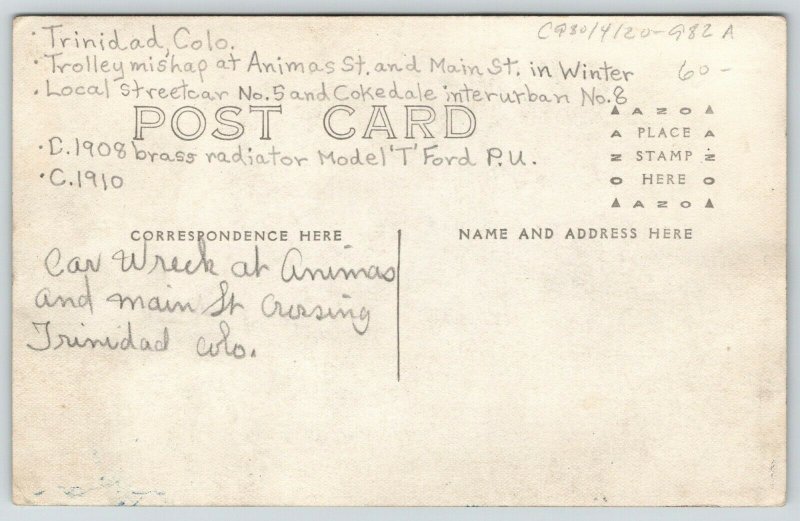 · Trinidad, Colo.
· Trolley mishap at Animas St. and Main St. in Winter 60-
· Local streetcar No. 5 and Cokedale interurban No. 8
POST CARD
· C. 1908 brass radiator Model 'T' Ford P.U.
· C. 1910
AZO
PLACE
STAMP
HERE
AZO
CORRESPONDENCE HERE
NAME AND ADDRESS HERE
Car Wreck at Animas
and main St Crossing
Trinidad Colo.